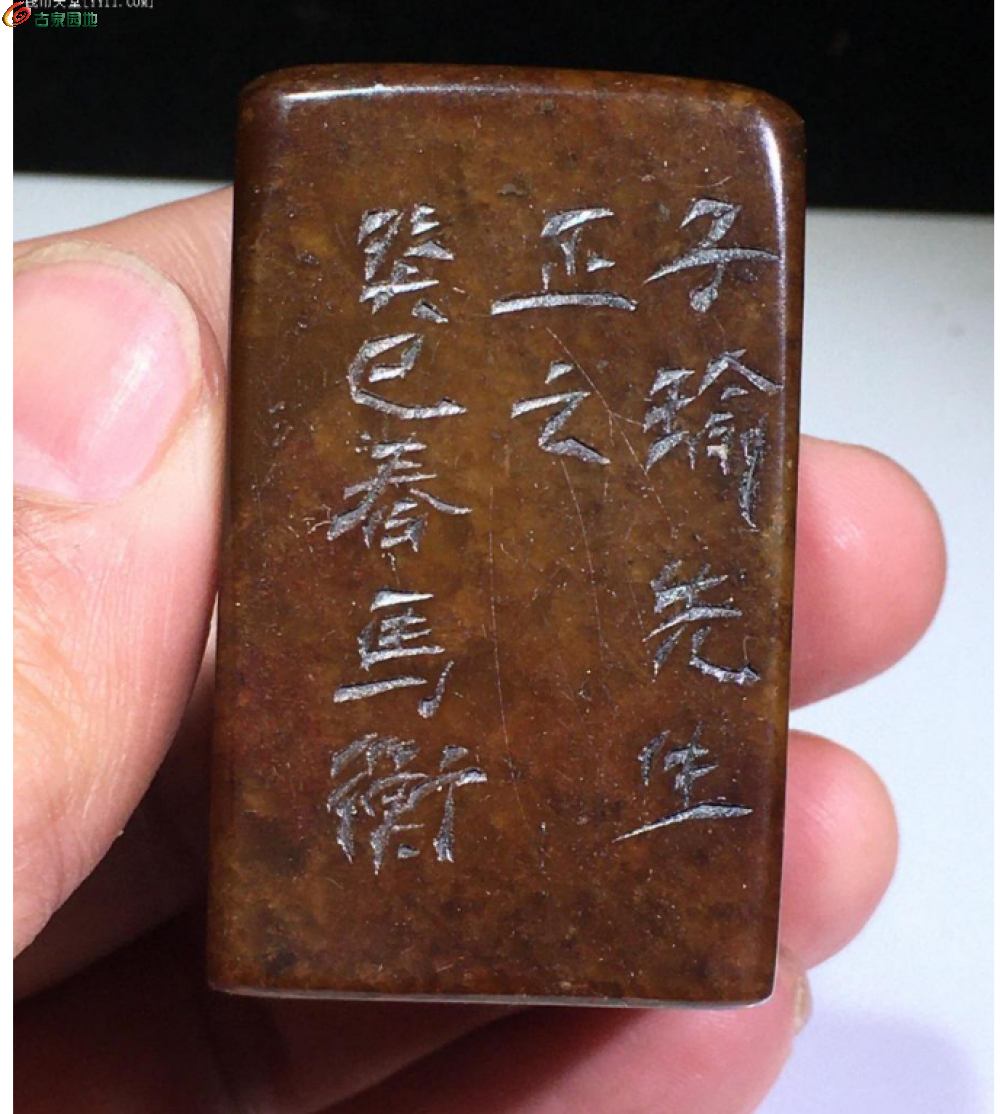 子瑜先生
正之
癸巳春馬衡
古泉园地